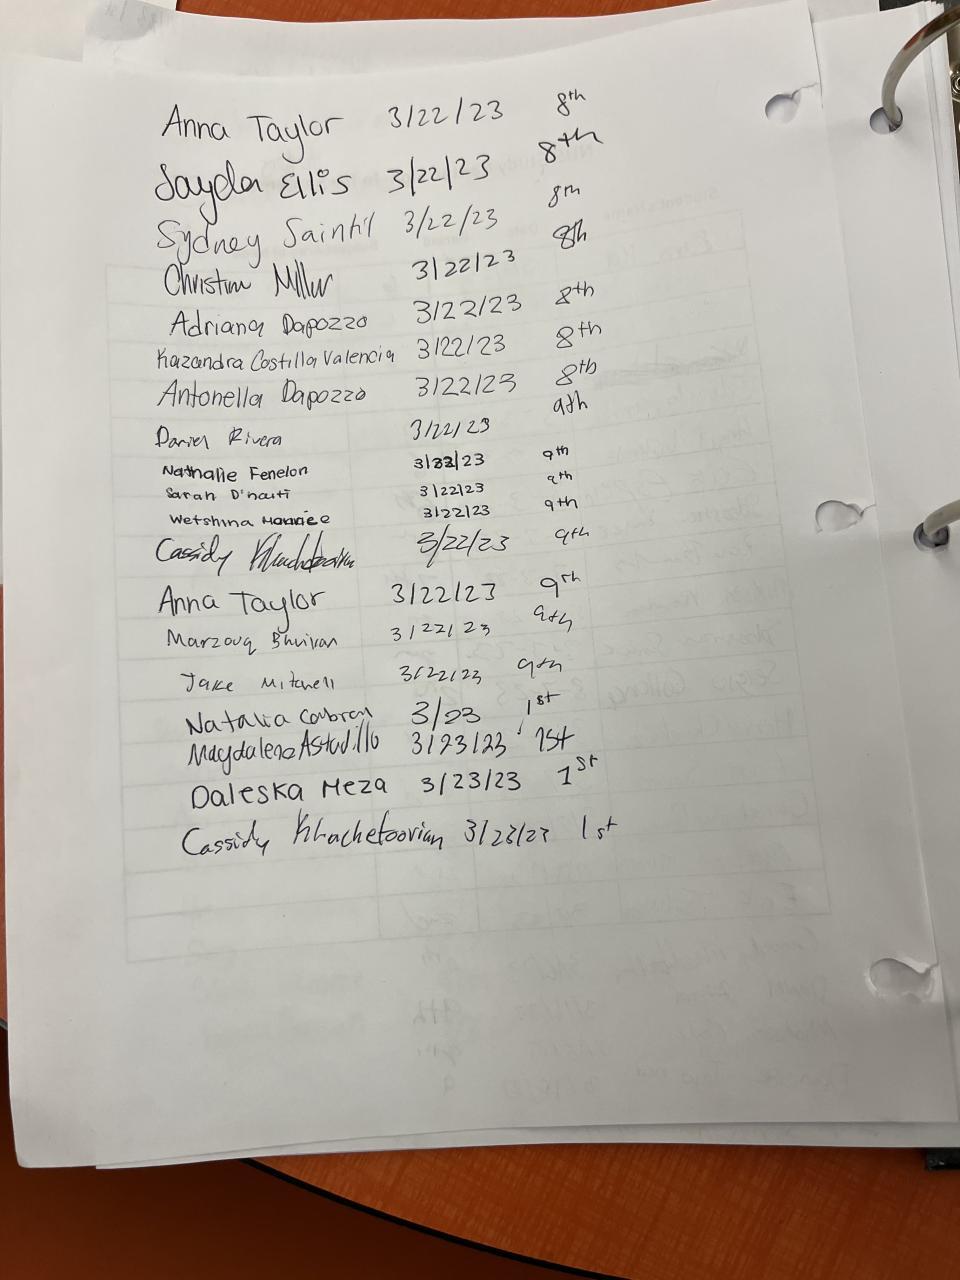 Anna Taylor 3/22/23 8th
Jayda Ellis 3/22/23 8th
Sydney Saintil 3/22/23 8th
Christina Miller 3/22/23 8th
Adriana Dapozzo 3/22/23 8th
Kazandra Costilla Valencia 3/22/23 8th
Antonella Dapozzo 3/22/23 8th
Daniel Rivera 3/22/23 9th
Nathalie Fenelon 3/22/23 9th
Sarah D'haiti 3/22/23 9th
Wetshina 3/22/23 9th
Cassidy 3/22/23 9th
Anna Taylor 3/22/23 9th
Marzouq Bhuiyan 3/22/23 9th
Jake Mitchell 3/22/23 9th
Natalia 3/23 1st
Magdalena Astudillo 3/23/23 1st
Daleska Meza 3/23/23 1st
Cassidy Khachetoorian 3/23/23 1st